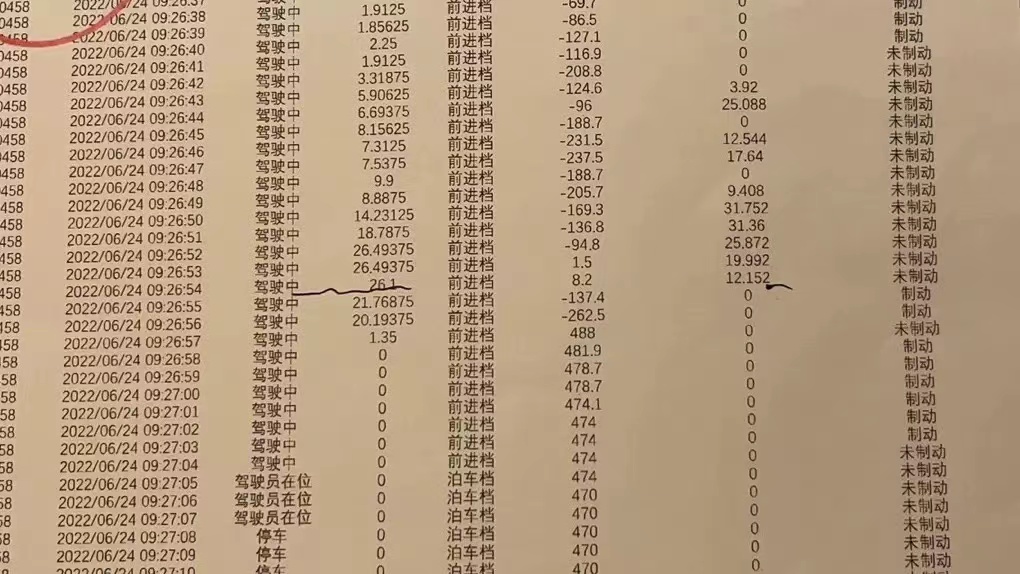 2022/06/24 09:26:37
0458 2022/06/24 09:26:38 驾驶中 1.9125 前进档 -69.7 0 制动
0458 2022/06/24 09:26:39 驾驶中 1.85625 前进档 -86.5 0 制动
0458 2022/06/24 09:26:40 驾驶中 2.25 前进档 -127.1 0 制动
0458 2022/06/24 09:26:41 驾驶中 1.9125 前进档 -116.9 0 未制动
0458 2022/06/24 09:26:42 驾驶中 3.31875 前进档 -208.8 0 未制动
0458 2022/06/24 09:26:43 驾驶中 5.90625 前进档 -124.6 3.92 未制动
0458 2022/06/24 09:26:44 驾驶中 6.69375 前进档 -96 25.088 未制动
0458 2022/06/24 09:26:45 驾驶中 8.15625 前进档 -188.7 0 未制动
0458 2022/06/24 09:26:46 驾驶中 7.3125 前进档 -231.5 12.544 未制动
0458 2022/06/24 09:26:47 驾驶中 7.5375 前进档 -237.5 17.64 未制动
0458 2022/06/24 09:26:48 驾驶中 9.9 前进档 -188.7 0 未制动
0458 2022/06/24 09:26:49 驾驶中 8.8875 前进档 -205.7 9.408 未制动
458 2022/06/24 09:26:50 驾驶中 14.23125 前进档 -169.3 31.752 未制动
458 2022/06/24 09:26:51 驾驶中 18.7875 前进档 -136.8 31.36 未制动
458 2022/06/24 09:26:52 驾驶中 26.49375 前进档 -94.8 25.872 未制动
458 2022/06/24 09:26:53 驾驶中 26.49375 前进档 1.5 19.992 未制动
458 2022/06/24 09:26:54 驾驶中 26.1 前进档 8.2 12.152 未制动
458 2022/06/24 09:26:55 驾驶中 21.76875 前进档 -137.4 0 制动
458 2022/06/24 09:26:56 驾驶中 20.19375 前进档 -262.5 0 制动
458 2022/06/24 09:26:57 驾驶中 1.35 前进档 488 0 未制动
58 2022/06/24 09:26:58 驾驶中 0 前进档 481.9 0 制动
58 2022/06/24 09:26:59 驾驶中 0 前进档 478.7 0 制动
58 2022/06/24 09:27:00 驾驶中 0 前进档 478.7 0 制动
58 2022/06/24 09:27:01 驾驶中 0 前进档 474.1 0 制动
58 2022/06/24 09:27:02 驾驶中 0 前进档 474 0 制动
58 2022/06/24 09:27:03 驾驶中 0 前进档 474 0 制动
58 2022/06/24 09:27:04 驾驶中 0 前进档 474 0 未制动
58 2022/06/24 09:27:05 驾驶员在位 0 泊车档 474 0 未制动
58 2022/06/24 09:27:06 驾驶员在位 0 泊车档 470 0 未制动
58 2022/06/24 09:27:07 驾驶员在位 0 泊车档 470 0 未制动
58 2022/06/24 09:27:08 停车 0 泊车档 470 0 未制动
58 2022/06/24 09:27:09 停车 0 泊车档 470 0 未制动
2022/06/24 09:27:10 停车 0 泊车档 470 0 未制动